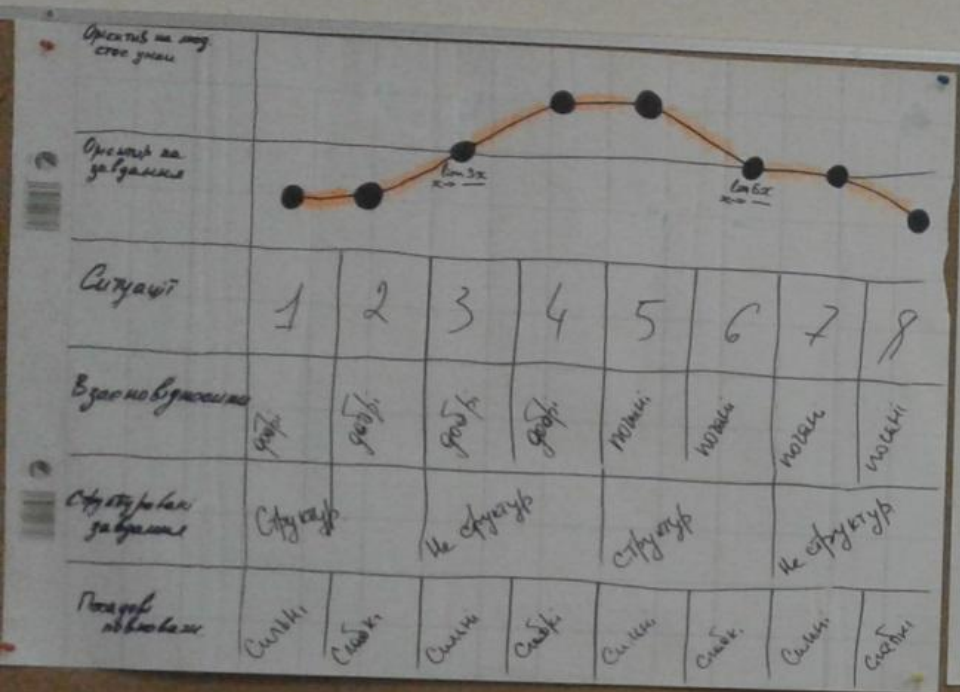 Орієнтив на люд
стосунки
Орієнтир на
завдання
lim 3x
x→
lim 6x
x→
Ситуації
1 2 3 4 5 6 7 8
Взаємовідносини
добрі добрі добрі добрі погані погані поган. погані
Структурован
завдання
Структур Не структур Структур Не структур
Посадов
повноваж
Сильні Слабкі Сильні Слабкі Сильні слабк. Сильні слабкі